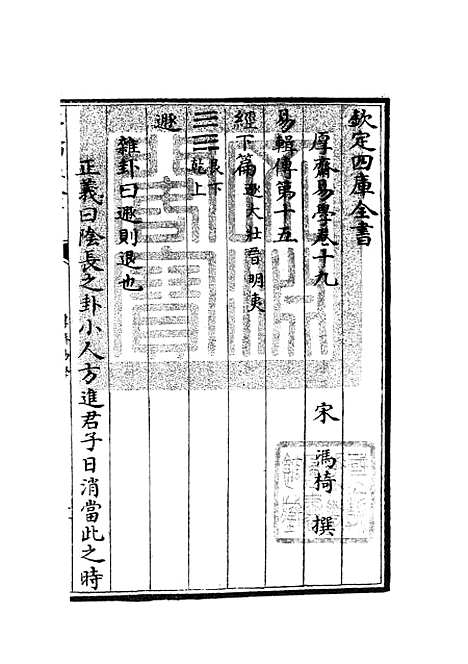 欽定四庫全書
厚齋易學卷十九
宋 馮椅 撰
易輯傳第十五
經下篇 遯大壯晉明夷
艮下乾上
遯
雜卦曰遯則退也
正義曰陰長之卦小人方進君子日消當此之時